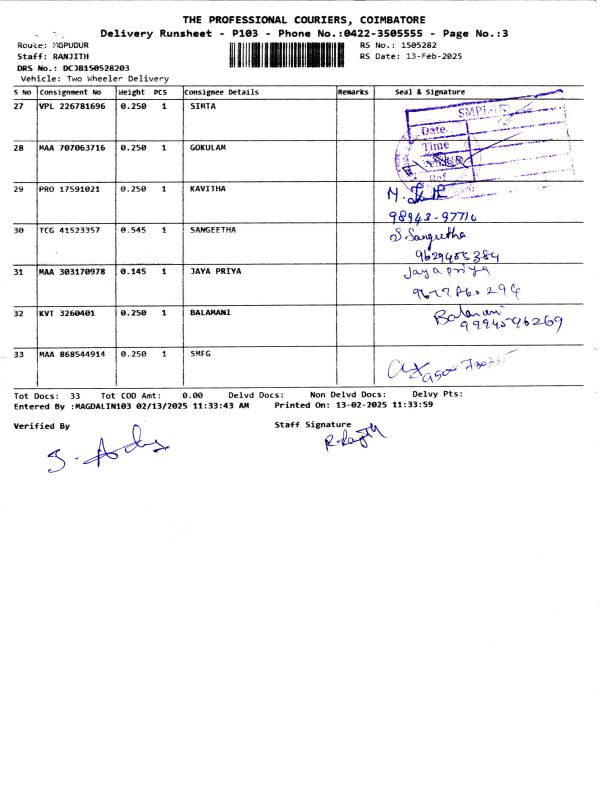 THE PROFESSIONAL COURIERS, COIMBATORE
Delivery Runsheet - P103 - Phone No.:0422-3505555 - Page No.:3
Route: MGPUDUR RS No.: 1505282
Staff: RANJITH RS Date: 13-Feb-2025
DRS No.: DCJB150528203
Vehicle: Two Wheeler Delivery
S No Consignment No Weight PCS Consignee Details Remarks Seal & Signature
27 VPL 226781696 0.250 1 SIMTA
Date
28 MAA 707063716 0.250 1 GOKULAM Time
29 PRO 17591021 0.250 1 KAVITHA
98943-97710
30 TCG 41523357 0.545 1 SANGEETHA S.Sangeetha
9629455384
31 MAA 303170978 0.145 1 JAYA PRIYA Jayapriya
32 KVT 3260401 0.250 1 BALAMANI Balamani
33 MAA 868544914 0.250 1 SMFG
Tot Docs: 33 Tot COD Amt: 0.00 Delvd Docs: Non Delvd Docs: Delvy Pts:
Entered By :MAGDALIN103 02/13/2025 11:33:43 AM Printed On: 13-02-2025 11:33:59
Verified By Staff Signature